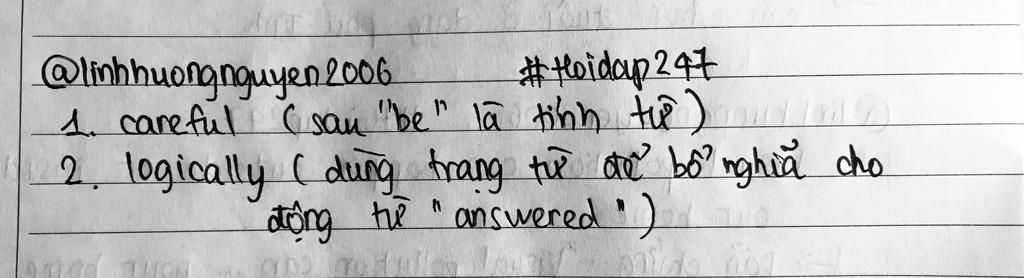 @linhhuongnguyen2006 #Hoidap247
1. careful (sau "be" là tính từ)
2. logically (dùng trạng từ để bổ nghĩa cho
động từ "answered")